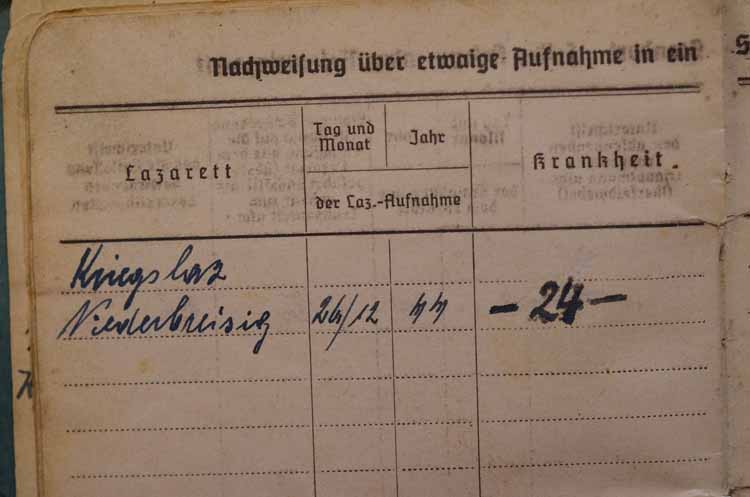 Nachweisung über etwaige Aufnahme in ein
Lazarett
Tag und Monat
Jahr
der Laz.-Aufnahme
Krankheit.
Kriegslaz
Niederbreisig 24/12 44 - 24 -